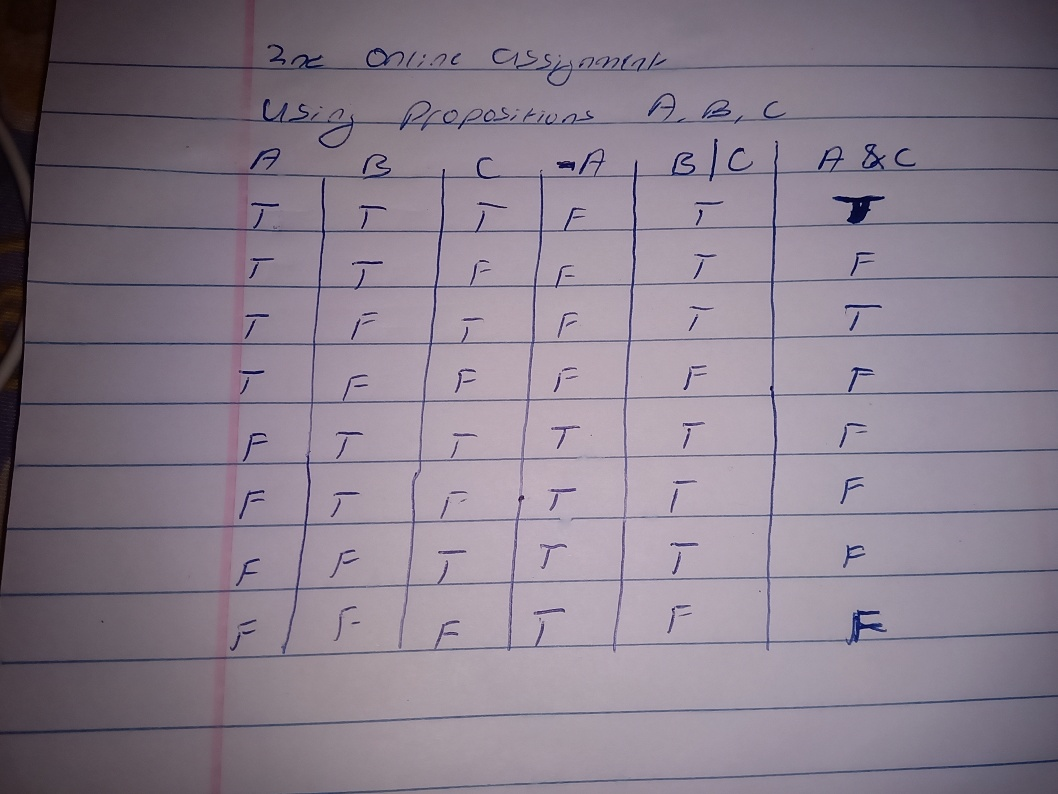 2nd Online assignment
Using Propositions A, B, C
A B C ¬A B | C A & C
T T T F T T
T T F F T F
T F T F T T
T F F F F F
F T T T T F
F T F T T F
F F T T T F
F F F T F F